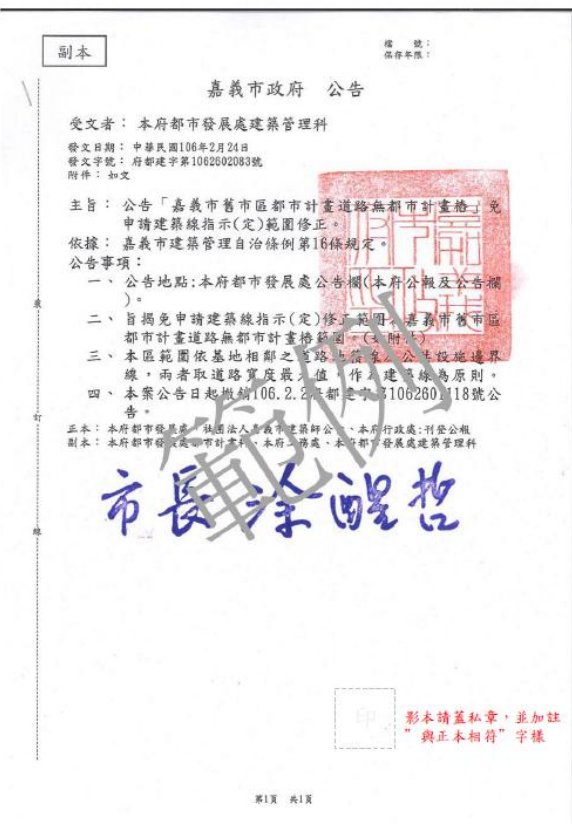 副本
檔　號：
保存年限：
嘉義市政府　公告
受文者：本府都市發展處建築管理科
發文日期：中華民國106年2月24日
發文字號：府都建字第1062602083號
附件：如文
主旨：公告「嘉義市舊市區都市計畫道路無都市計畫樁」免
申請建築線指示(定)範圍修正。
依據：嘉義市建築管理自治條例第16條規定。
公告事項：
一、公告地點:本府都市發展處公告欄(本府公報及公告欄
)。
二、旨揭免申請建築線指示(定)修正範圍：嘉義市舊市區
都市計畫道路無都市計畫樁範圍。(如附件)
三、本區範圍依基地相鄰之道路地籍線及公共設施邊界
線，兩者取道路寬度最大值，作為建築線為原則。
四、本案公告日起撤銷106.2.2府都建字第1062601118號公
告。
正本：本府都市發展處、社團法人嘉義市建築師公會、本府行政處:刊登公報
副本：本府都市發展處都市計畫科、本府工務處、本府都市發展處建築管理科
市長涂醒哲
範例
裝
訂
線
印
影本請蓋私章，並加註
"與正本相符"字樣
第1頁　共1頁